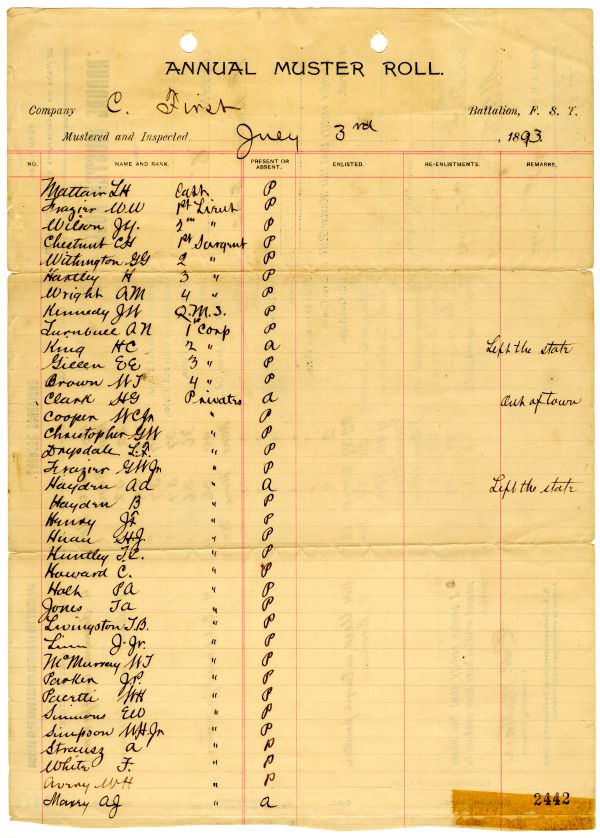 ANNUAL MUSTER ROLL.
Company C. First Battalion, F. S. T.
Mustered and Inspected July 3rd, 1893.
NO. NAME AND RANK. PRESENT OR ABSENT. ENLISTED. RE-ENLISTMENTS. REMARKS.
Mattair LH Capt P
Frazier WW 1st Lieut P
Wilson JY. 2nd " P
Chestnut CH 1st Sargent P
Withington GG 2 " P
Hartley H 3 " P
Wright AM 4 " P
Kennedy JW Q.M.S. P
Turnbull AN 1st Corp P
King HC 2 " A Left the state
Gillen EE 3 " P
Brown WT 4 " P
Clark HG Privates A Out of town
Cooper WC Jr " P
Christopher GW " P
Drysdale L.F. " P
Frazier GW Jr " P
Hayden AA " A Left the state
Hayden B " P
Henry JF " P
GHJ. " P
Huntley T.C. " P
Howard C. " P
PA " P
Jones TA " P
Livingston T.B. " P
Linn J. Jr. " P
McMurray WT " P
Parken JP. " P
WH " P
Simmons EW " P
Simpson WH. Jr " P
Strausz A " P
White F. " P
Avery WH " P
AJ " A
2442